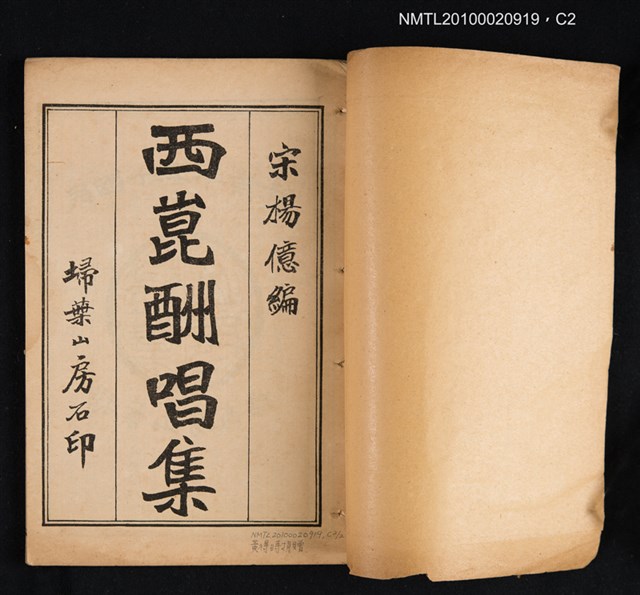 NMTL20100020919，C2
宋楊億編
西崑酬唱集
埽葉山房石印
NMTL20100020919, C2/2